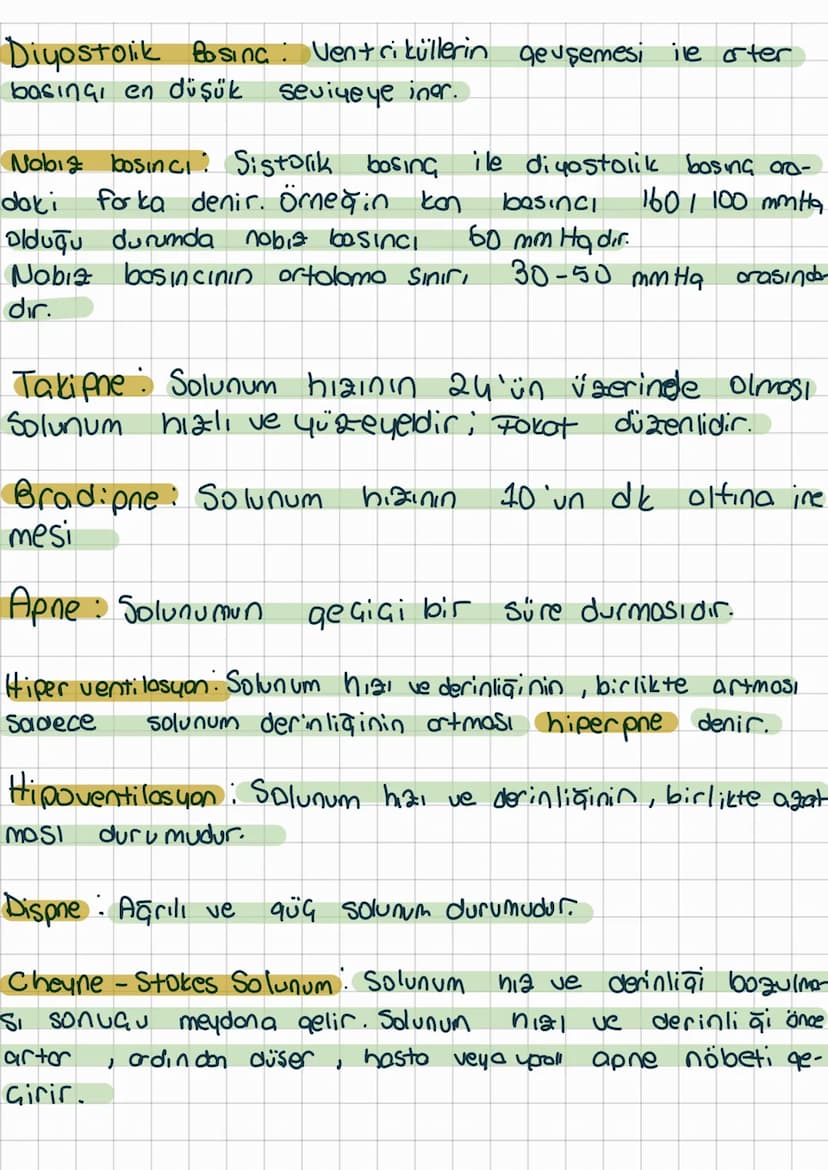 Diyastolik Basınc : Ventriküllerin gevşemesi ile arter
basıncı en düşük seviyeye iner.
Nabız basıncı : Sistolik basınç ile diyastolik basınç ara-
daki farka denir. Örneğin kan basıncı 160 / 100 mmHg
olduğu durumda nabız basıncı 60 mmHg dır.
Nabız basıncının ortalama sınırı 30-50 mmHg arasında
dır.
Takipne : Solunum hızının 24'ün üzerinde olması
Solunum hızlı ve yüzeyeldir ; Fakat düzenlidir.
Bradipne : Solunum hızının 10'un dk altına ine
mesi
Apne : Solunumun geçici bir süre durmasıdır.
Hiper ventilasyon : Solunum hızı ve derinliğinin , birlikte artması
sadece solunum derinliğinin artması hiperpne denir.
Hipoventilasyon : Solunum hızı ve derinliğinin , birlikte azal
ması durumudur.
Dispne : Ağrılı ve güç solunum durumudur.
Cheyne - Stokes Solunum : Solunum hız ve derinliği bozulma-
sı sonucu meydana gelir. Solunum hızı ve derinliği önce
artar , ardından düşer , hasta veya apne nöbeti ge-
çirir.